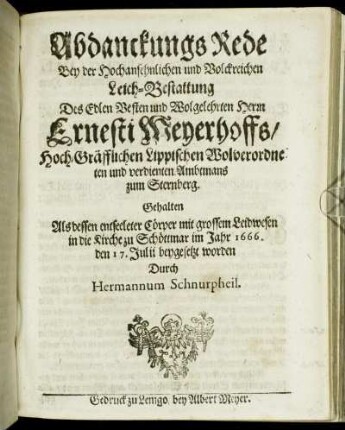 Abdanckungs Rede
Bey der Hochansehnlichen und Volckreichen
Leich-Bestattung
Des Edlen Vesten und Wolgelehrten Herrn
Ernesti Meyerhoffs/
Hoch Gräfflichen Lippischen Wolverordne
ten und verdienten Ambtmans
zum Sternberg.
Gehalten
Als dessen entseeleter Cörper mit grossem Leidwesen
in die Kirche zu Schöttmar im Jahr 1666.
den 17. Julii beygesetzt worden
Durch
Hermannum Schnurpheil.
Gedruckt zu Lemgo, bey Albert Meyer.